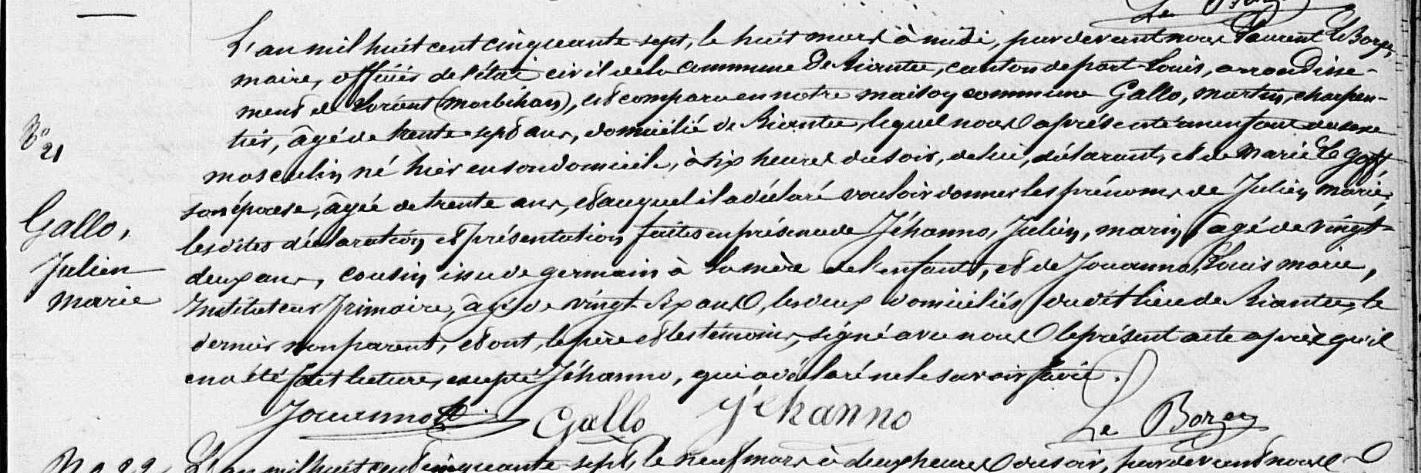 L'an mil huit cent cinquante sept, le huit mars à midi, par devant nous Laurent Le Borgn
maire, officier de l'état civil de la commune de Riantec, canton de port-Louis, arrondisse-
ment de Lorient (Morbihan), est comparu en notre maison commune Gallo, martin, charpen-
tier, âgé de trente sept ans, domicilié de Riantec, lequel nous a présenté un enfant du sexe
N° 21
masculin né hier en son domicile, à six heures du soir, de lui, déclarant, et de Marie Le Goff
son épouse, âgée de trente ans, et auquel il a déclaré vouloir donner les prénoms de Julien marie,
Gallo,
les dites déclaration et présentation faites en présence de Jéhanno, Julien, marin, âgé de vingt-
Julien
deux ans, cousin issu de germain à la mère de l'enfant, et de Jouanno, Louis marie,
marie
Instituteur primaire, âgé de vingt six ans, les deux domiciliés du dit lieu de Riantec, le
dernier non parent, et ont, le père et les témoins, signé avec nous le présent acte après qu'il
en a été fait lecture, excepté Jéhanno, qui a déclaré ne le savoir faire.
Jouanno Gallo Jéhanno Le Borgn
N° 22 L'an mil huit cent cinquante sept, le neuf mars à deux heures du soir, par devant nous